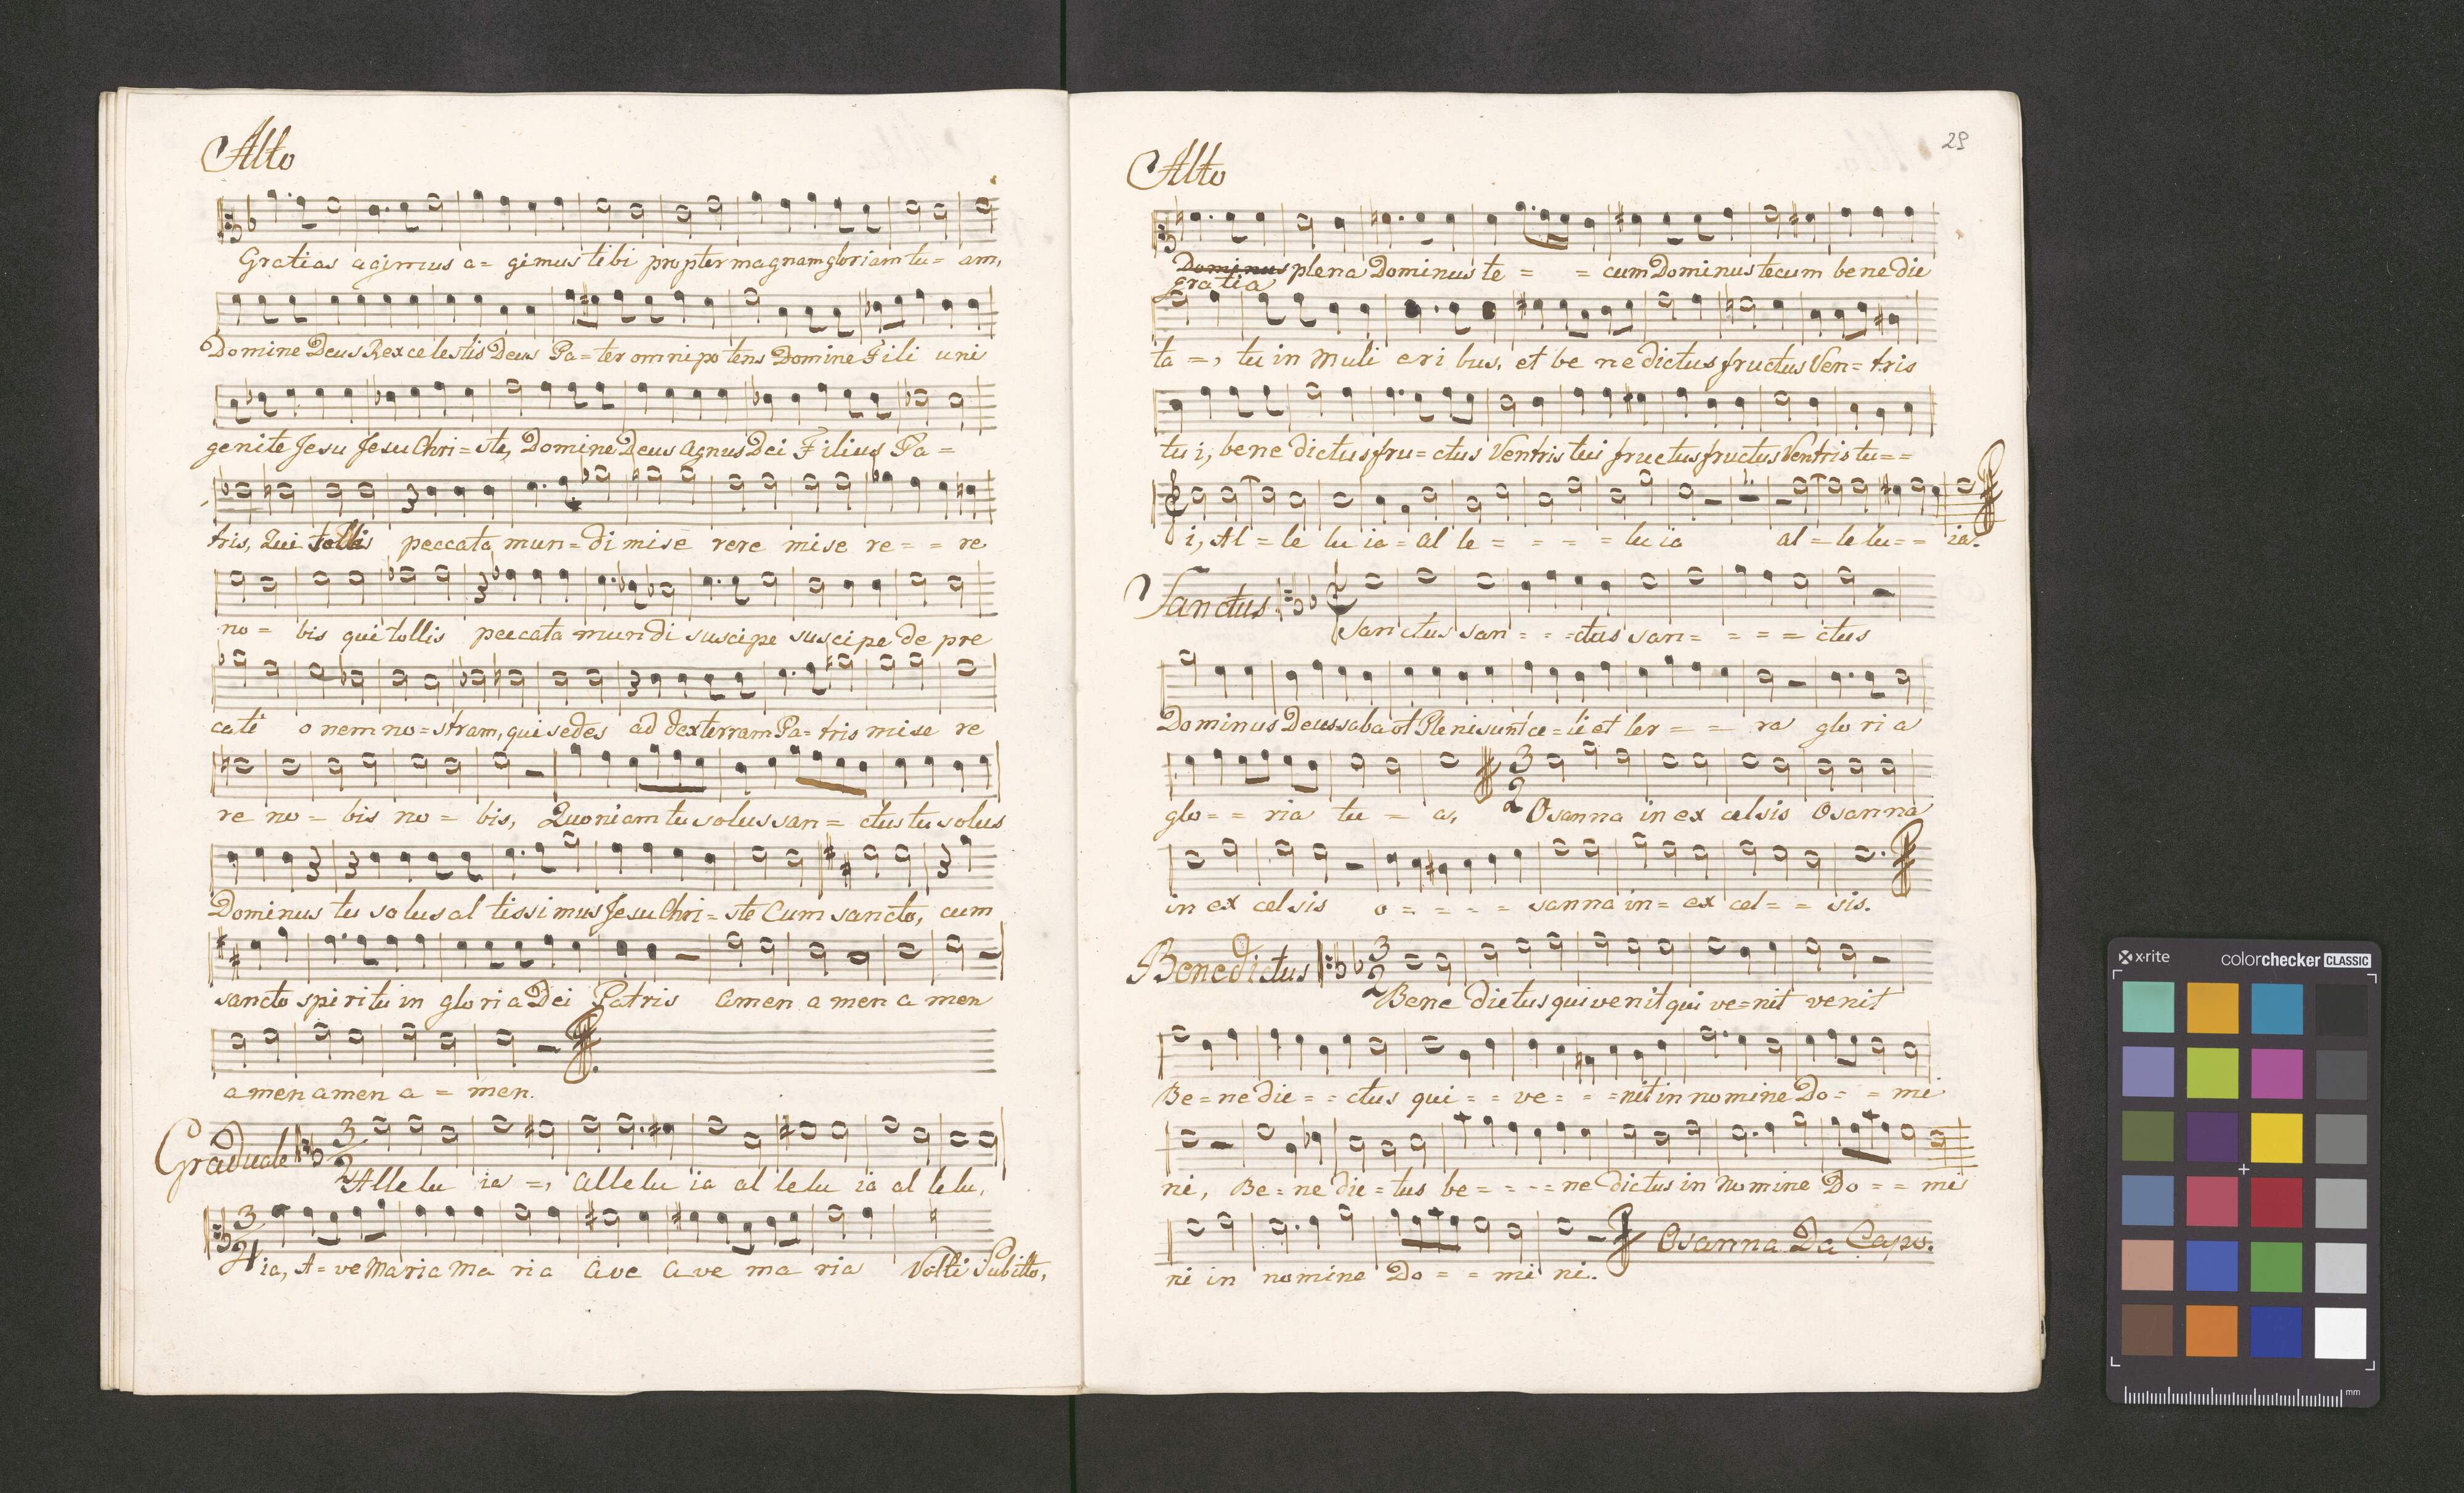 Alto
Gratias agimus a= gimus tibi propter magnam gloriam tu= am,
Domine Deus Rex celestis Deus Pa=ter omnipotens Domine Fili uni
genite Jesu Jesu Chri=ste, Domine Deus Agnus Dei Filius Pa=
tris, Qui tollis peccata mun=di mise rere mise re= = re
no= bis qui tollis peccata mundi suscipe suscipe de pre
cati o nem no=stram, qui sedes ad dexterram Pa=tris mise re
re no= bis no= bis, Quoniam tu solus san= ctus tu solus
Dominus tu solus al tissimus Jesu Chri=ste Cum sancto, cum
sancto spiritu in gloria Dei Patris amen a men a men
a men amen a= men.
Graduale 3/2
Allelu ia =, allelu ia al lelu ia al lelu,
3/4
ia, A=ve Maria Ma ria ave ave ma ria Volti Subitto,
29
Alto
Dominus plena Dominus te= =cum Dominus tecum bene die
gratia
ta=, tu in muli eri bus, et be ne dictus fructus Ven=tris
tui, bene dictus fru=ctus Ventris tui fructus fructus Ventris tu==
i, Al=le lu ia=al le= = = =lu ia al=lelu== ia.
Sanctus
Sanctus san= = =ctus san= = = = ctus
Dominus Deus sabaot Pleni sunt ce=li et ter= = ra glo ri a
3/2
glo= = ria tu= a, Osanna in ex celsis Osanna
in ex celsis o= = = = sanna in= ex cel= = sis.
Benedictus 3/2
Bene dictus qui venit qui ve=nit venit
Be=ne die= =ctus qui= = ve= = =nit in nomine Do= = mi
ni, Be=ne die=tus be= = = =ne dictus in Nomine Do= = mi
Osanna Da Capo.
ni in nomine Do= = mi ni.
x·rite colorchecker CLASSIC
mm